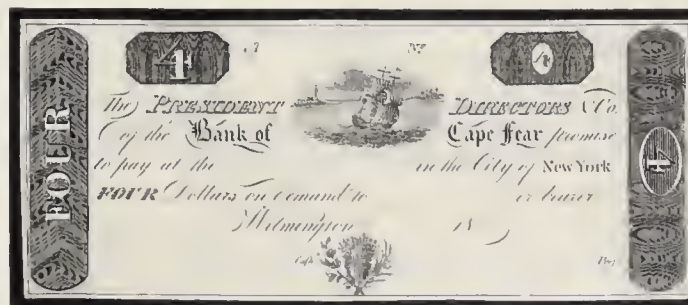 4 No 4
The PRESIDENT DIRECTORS & Co.
of the Bank of Cape Fear promise
to pay at the in the City of New York
FOUR Dollars on demand to or bearer
Wilmington 18
Cash. Pres.
FOUR
4